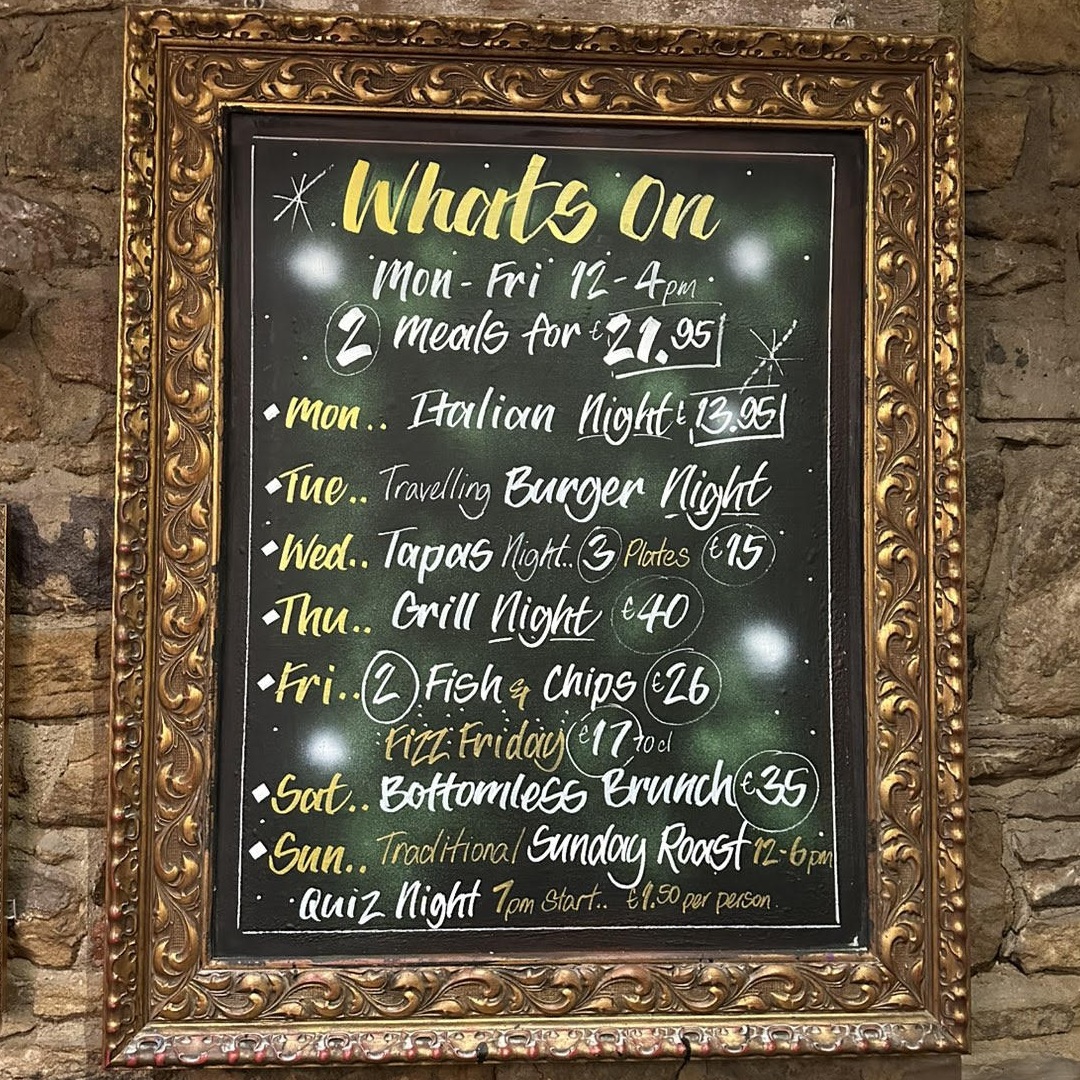 Whats On
Mon - Fri 12-4pm
2 Meals for £21.95
Mon.. Italian Night £13.95
Tue.. Travelling Burger Night
Wed.. Tapas Night.. 3 Plates £15
Thu.. Grill Night £40
Fri.. 2 Fish & Chips £26
Fizz Friday £17 70cl
Sat.. Bottomless Brunch £35
Sun.. Traditional Sunday Roast 12-6pm
Quiz Night 7pm Start.. £1.50 per person